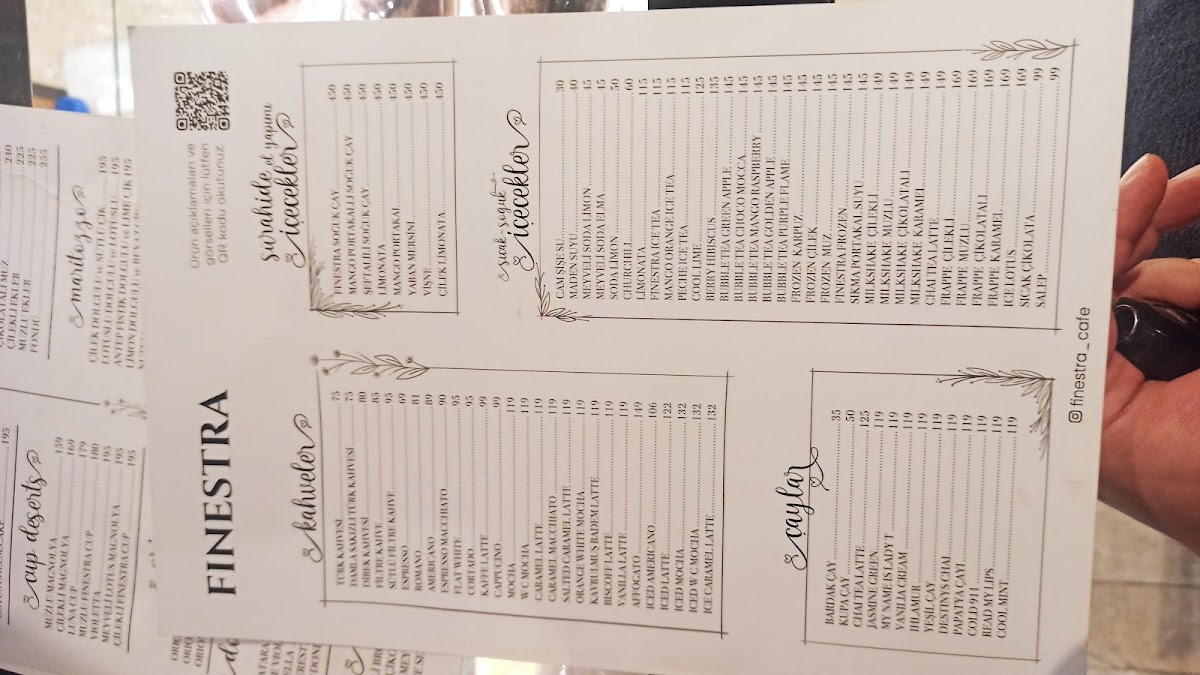 FINESTRA
Ürün açıklamaları ve
görselleri için lütfen
QR kodu okutunuz
kahveler
TÜRK KAHVESİ 75
DAMLA SAKIZLI TÜRK KAHVESİ 75
DİBEK KAHVESİ 80
FİLTRE KAHVE 85
SÜTLÜ FİLTRE KAHVE 95
ESPRESSO 69
ROMANO 81
AMERICANO 89
ESPRESSO MACCHIATO 90
FLAT WHITE 95
CORTADO 95
KAFFE LATTE 99
CAPPUCINO 99
MOCHA 119
W C MOCHA 119
CARAMEL LATTE 119
CARAMEL MACCHIATO 119
SALTED CARAMEL LATTE 119
ORANGE WHITE MOCHA 119
KAVRULMUŞ BADEM LATTE 119
BISCOFF LATTE 119
VANILLA LATTE 119
AFFOGATO 149
ICED AMERICANO 106
ICED LATTE 122
ICED MOCHA 132
ICED W C MOCHA 132
ICE CARAMEL LATTE 132
çaylar
BARDAK ÇAY 35
KUPA ÇAY 50
CHAI TEA LATTE 125
JASMINE GREEN 119
MY NAME IS LADY T. 119
VANILIA CREAM 119
IHLAMUR 119
YEŞİL ÇAY 119
DESTINYS CHAI 119
PAPATYA ÇAYI 119
COLD 911 119
READ MY LIPS 119
COOL MINT 119
sürahide, el yapımı
içecekler
FINESTRA SOĞUK ÇAY 450
MANGO PORTAKALLI SOĞUK ÇAY 450
ŞEFTALİLİ SOĞUK ÇAY 450
LİMONATA 450
MANGO PORTAKAL 450
YABAN MERSİNİ 450
VİŞNE 450
ÇİLEK LİMONATA 450
sıcak, soğuk
içecekler
CAM ŞİŞE SU 30
MADEN SUYU 40
MEYVELİ SODA LİMON 45
MEYVELİ SODA ELMA 45
SODA LİMON 50
CHURCHILL 60
LİMONATA 115
FINESTRA ICE TEA 115
MANGO ORANGE ICE TEA 115
PECHE ICE TEA 115
COOL LIME 125
BERRY HIBISCUS 135
BUBBLE TEA GREEN APPLE 145
BUBBLE TEA CHOCO MOCCA 145
BUBBLE TEA MANGO RASPBERRY 145
BUBBLE TEA GOLDEN APPLE 145
BUBBLE TEA PURPLE FLAME 145
FROZEN KARPUZ 145
FROZEN ÇİLEK 145
FROZEN MUZ 145
FINESTRA FROZEN 145
SIKMA PORTAKAL SUYU 145
MILKSHAKE ÇİLEKLİ 149
MILKSHAKE MUZLU 149
MILKSHAKE ÇİKOLATALI 149
MILKSHAKE KARAMEL 149
CHAI TEA LATTE 149
FRAPPE ÇİLEKLİ 169
FRAPPE MUZLU 169
FRAPPE ÇİKOLATALI 169
FRAPPE KARAMEL 169
ICE LOTUS 169
SICAK ÇİKOLATA 99
SALEP 99
finestra_cafe
195
cup deserts
MUZLU MAGNOLYA 159
ÇİLEKLİ MAGNOLYA 169
LUNA CUP 179
MUZLU FINESTRA CUP 180
VIOLETTA 195
MEYVELİ LOTUS MAGNOLYA 195
ÇİLEKLİ FINESTRA CUP 195
240
ÇİLEKLİ EKLER 225
MUZLU EKLER 225
FONDÜ 255
martozzo
ÇİLEK DOLGULU w SÜTLÜ ÇİK. 195
LOTUSLU DOLGULU w LOTUSLU 195
ANTEP FISTIK DOLGULU w LIME ÇİK 195